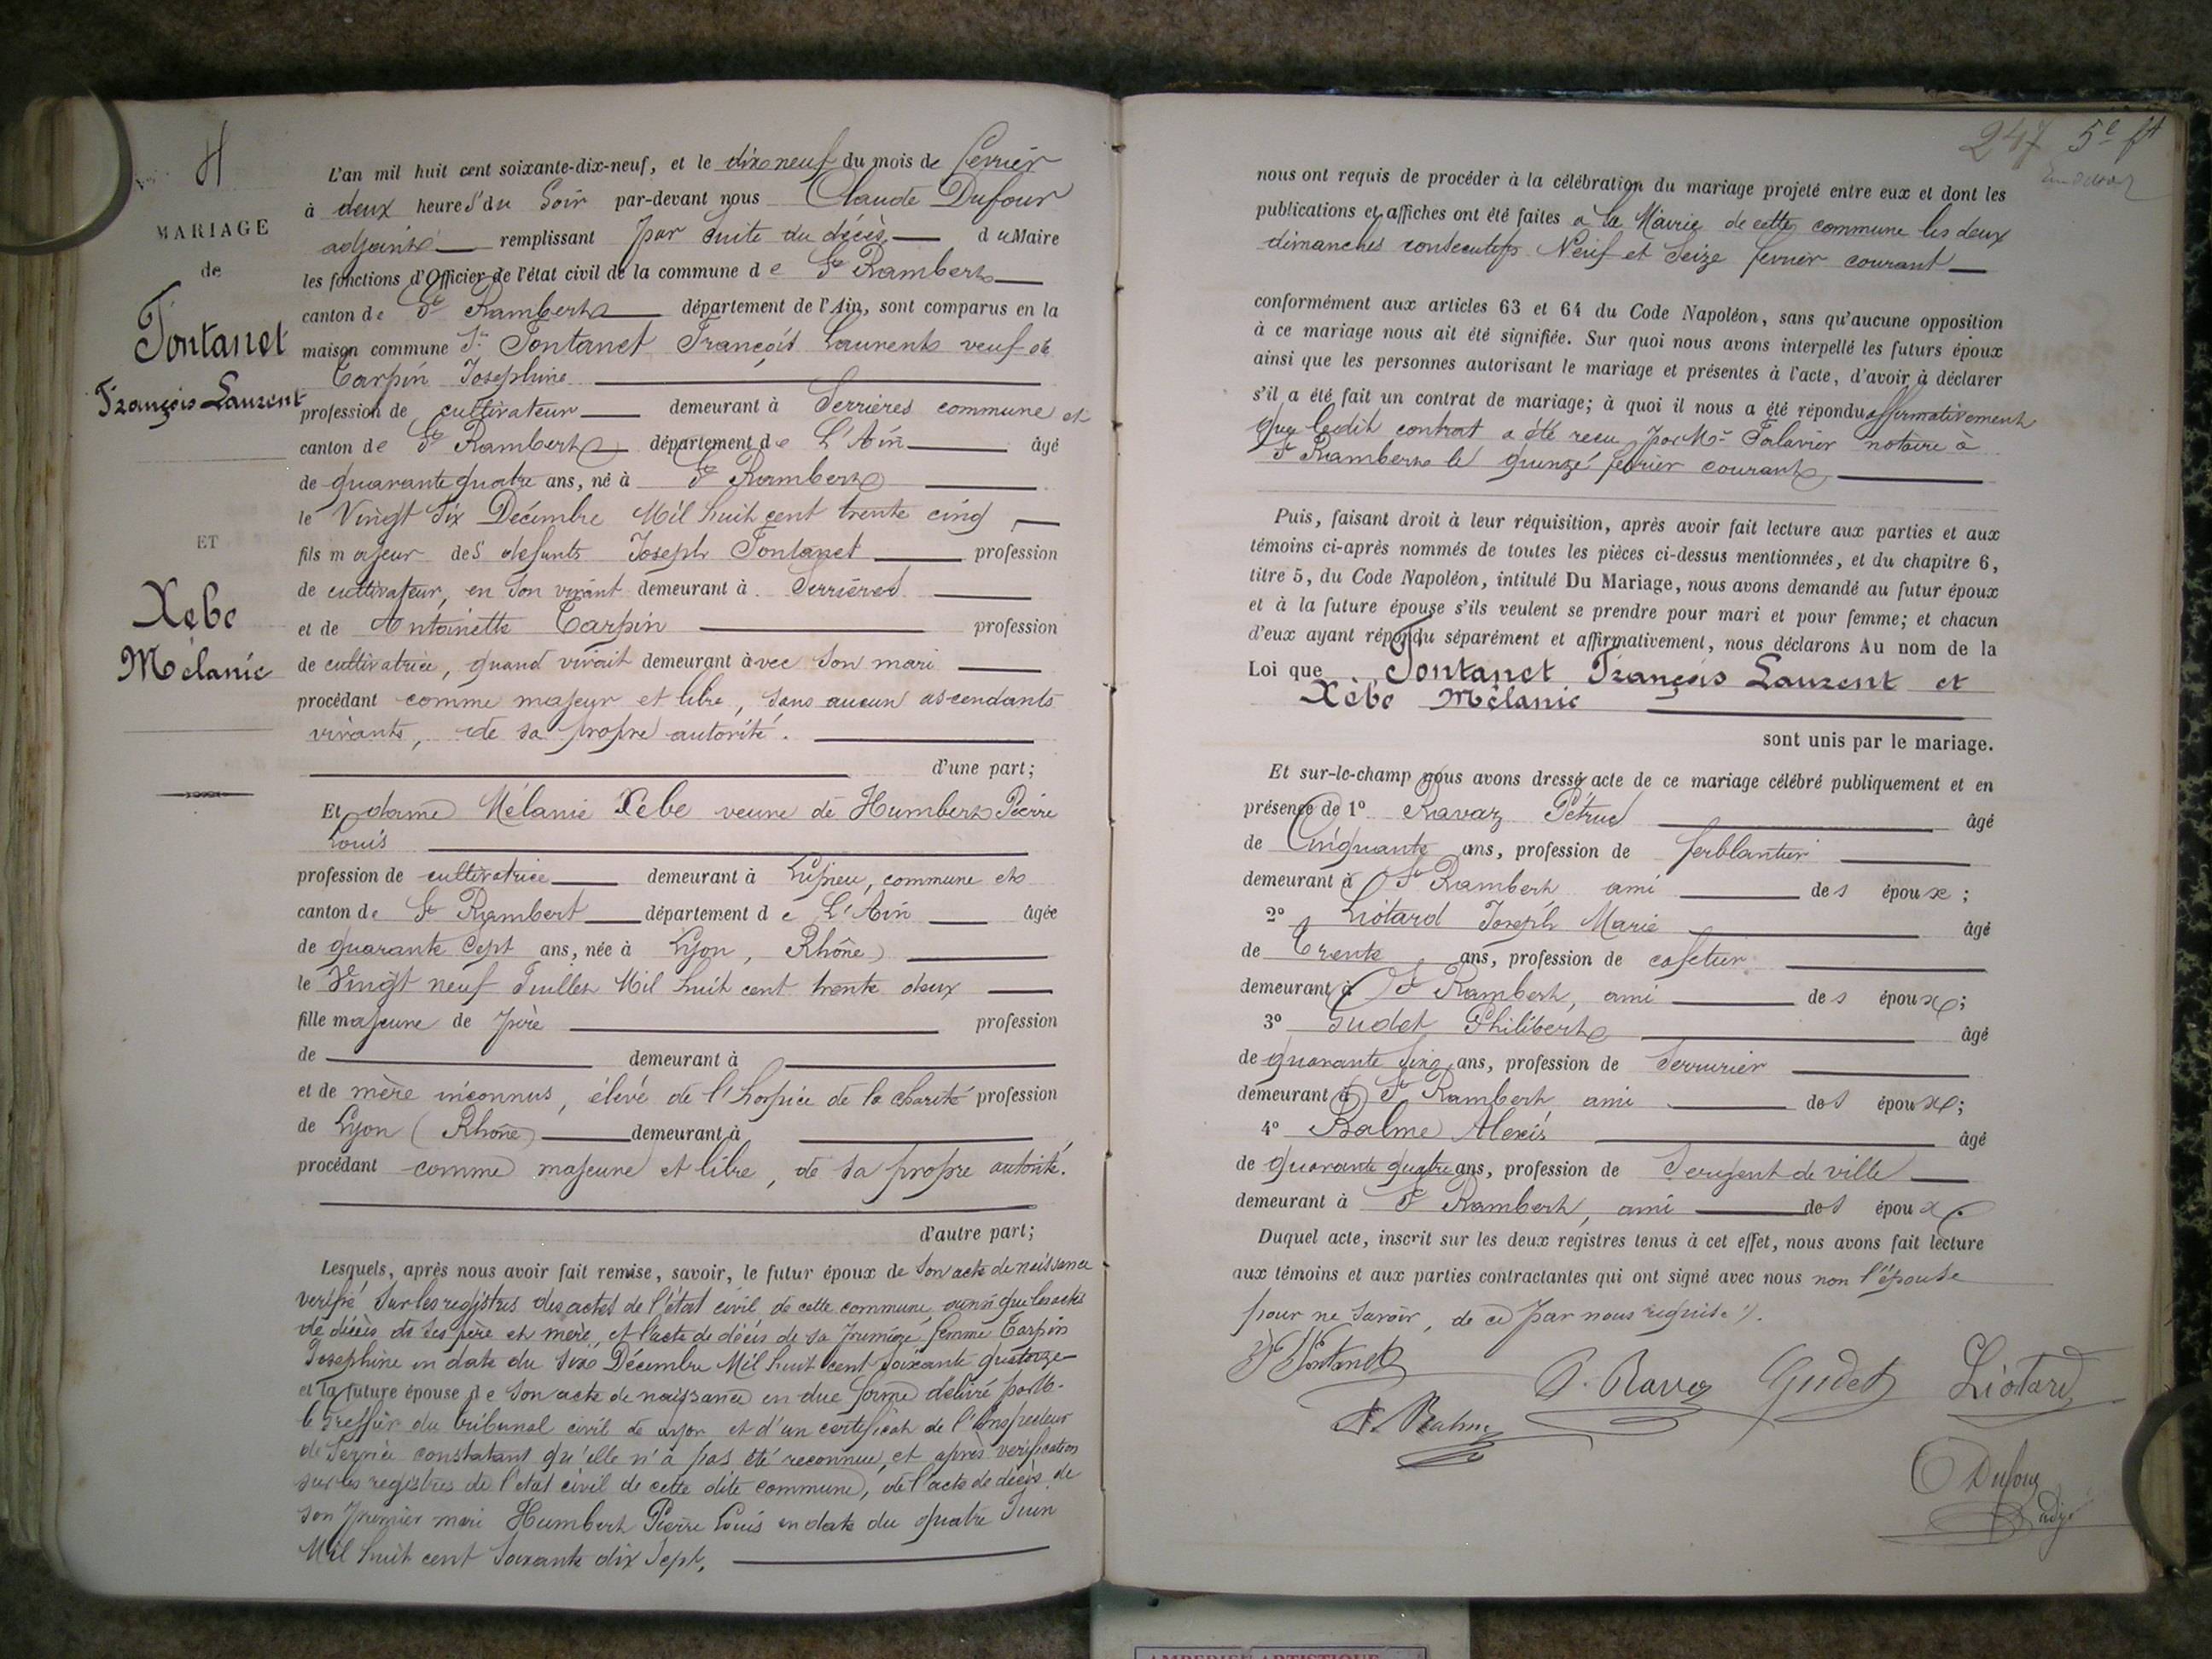 4
MARIAGE
de
Fontanet
François Laurent
ET
Xebe
Mélanie
L'an mil huit cent soixante-dix-neuf, et le dix neuf du mois de fevrier
à deux heures du Soir par-devant nous Claude Dufour
adjoint remplissant par suite du décès du Maire
les fonctions d'Officier de l'état civil de la commune de St Rambert
canton de St Rambert département de l'Ain, sont comparus en la
maison commune Sr Fontanet François Laurent veuf de
Carpin Josephine
profession de cultivateur demeurant à Serrières commune et
canton de St Rambert département de L'Ain âgé
de quarante quatre ans, né à St Rambert
le Vingt Six Décembre Mil huit cent trente cinq
fils majeur des defunts Joseph Fontanet profession
de cultivateur, en son vivant demeurant à Serrières
et de Antoinette Carpin profession
de cultivatrice, quand vivait demeurant avec son mari
procédant comme majeur et libre, sans aucun ascendants
vivants, de sa propre autorité.
d'une part;
Et dame Mélanie Xebe veuve de Humbert Pierre
Louis
profession de cultivatrice demeurant à Lupieu, commune et
canton de St Rambert département de L'Ain âgée
de quarante Sept ans, née à Lyon, Rhône
le Vingt neuf Juillet Mil huit cent trente deux
fille majeure de père profession
de demeurant à
et de mère inconnus, élevé de l'hospice de la charité profession
de Lyon (Rhône) demeurant à
procédant comme majeure et libre, de sa propre autorité.
d'autre part;
Lesquels, après nous avoir fait remise, savoir, le futur époux de son acte de naissance
verifié sur les registres des actes de l'état civil de cette commune, ainsi que les actes
de décès de ses père et mère, et l'acte de décès de sa première femme Carpin
Josephine en date du six Décembre Mil huit cent soixante quatorze
et la future épouse de son acte de naissance en due forme délivré par
le greffier du tribunal civil de Lyon et d'un certificat de l'inspecteur
de Service constatant qu'elle n'a pas été reconnue, et après vérification
sur les registres de l'etat civil de cette dite commune, de l'acte de décès de
son premier mari Humbert Pierre Louis en date du quatre Juin
Mil huit cent soixante dix Sept.
247 5e ft
nous ont requis de procéder à la célébration du mariage projeté entre eux et dont les
publications et affiches ont été faites a la Mairie de cette commune les deux
dimanches consecutifs Neuf et Seize fevrier courant
conformément aux articles 63 et 64 du Code Napoléon, sans qu'aucune opposition
à ce mariage nous ait été signifiée. Sur quoi nous avons interpellé les futurs époux
ainsi que les personnes autorisant le mariage et présentes à l'acte, d'avoir à déclarer
s'il a été fait un contrat de mariage; à quoi il nous a été répondu affirmativement
que ledit contrat a été recu par Mr Falavier notaire à
St Rambert le quinze fevrier courant
Puis, faisant droit à leur réquisition, après avoir fait lecture aux parties et aux
témoins ci-après nommés de toutes les pièces ci-dessus mentionnées, et du chapitre 6,
titre 5, du Code Napoléon, intitulé Du Mariage, nous avons demandé au futur époux
et à la future épouse s'ils veulent se prendre pour mari et pour femme; et chacun
d'eux ayant répondu séparément et affirmativement, nous déclarons Au nom de la
Loi que Fontanet François Laurent et
Xèbe Mélanie
sont unis par le mariage.
Et sur-le-champ nous avons dressé acte de ce mariage célébré publiquement et en
présence de 1° Ravaz Pétrus âgé
de Cinquante ans, profession de ferblantier
demeurant à St Rambert ami des époux;
2° Liotard Joseph Marie âgé
de Trente ans, profession de cafetier
demeurant à St Rambert, ami des époux;
3° Gudet Philibert âgé
de quarante six ans, profession de Serrurier
demeurant à St Rambert ami des époux;
4° Balme Alexis âgé
de quarante quatre ans, profession de Sergent de ville
demeurant à St Rambert, ami des époux.
Duquel acte, inscrit sur les deux registres tenus à cet effet, nous avons fait lecture
aux témoins et aux parties contractantes qui ont signé avec nous non l'épouse
pour ne savoir, de ce par nous requise.
Fontanet
P. Ravaz Gudet Liotard
A. Balme
Dufour
adjt